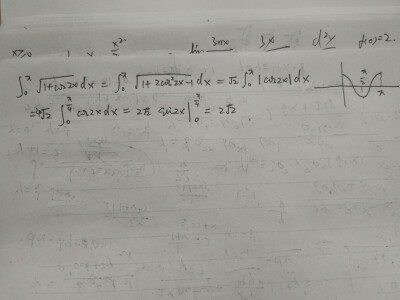 x→0 1 x x²/2 lim 3x d²y f(0)=2.
∫₀^π √(1+cos2x) dx = ∫₀^π √(1+2cos²2x-1) dx = √2 ∫₀^π |cos2x| dx
=4√2 ∫₀^(π/4) cos2x dx = 2√2 sin2x |₀^(π/4) = 2√2
π/2 π